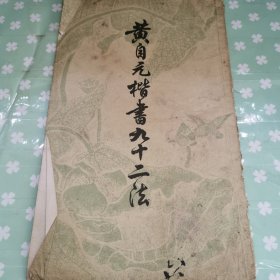 黄自元楷書九十二法